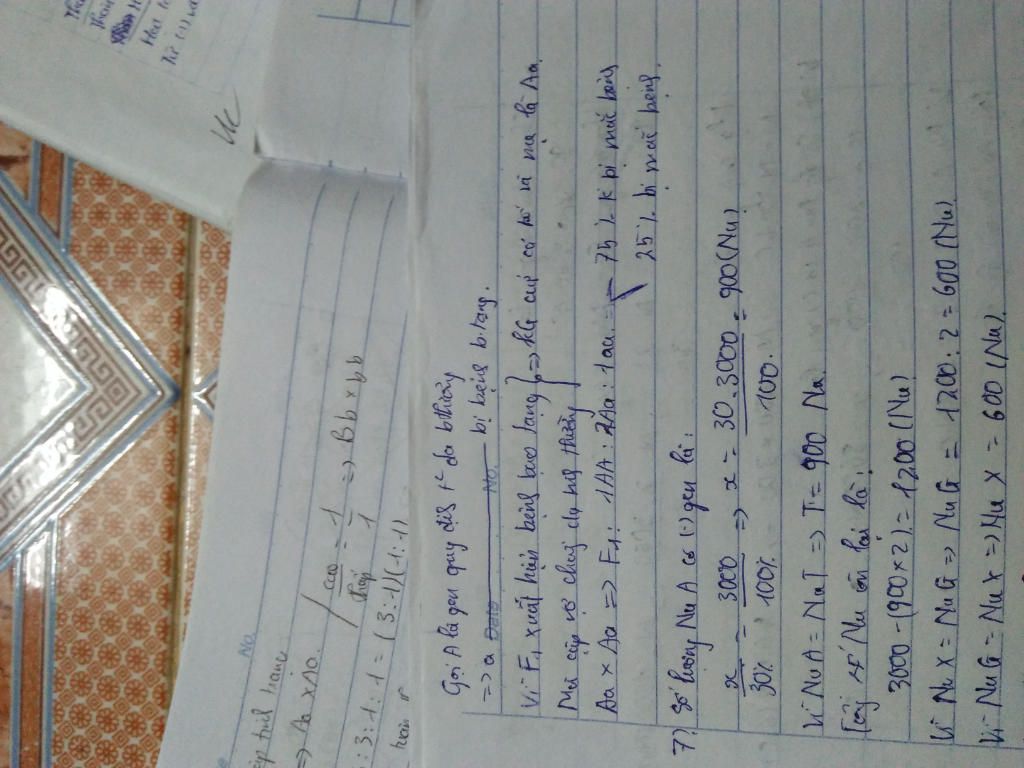 Gọi A là gen quy định t² da bthường
=> a ———— bị bệnh b.tạng.
Date No.
Vì F₁ xuất hiện bệnh bạch tạng } => KG của cả bố và mẹ là Aa
Mà cặp vợ chồng da bthường
Aa x Aa => F₁: 1AA : 2Aa : 1aa. = 75% k bị mắc bệnh
25% bị mắc bệnh.
7) Số lượng Nu A có (1) gen là:
x/30% = 3000/100% => x = 30.3000/100 = 900 (Nu)
Vì Nu A = Nu T => T = 900 Nu
Tổng số Nu còn lại là:
3000 - (900 x 2) = 1200 (Nu)
Vì Nu X = Nu G => Nu G = 1200 : 2 = 600 (Nu)
Vì Nu G = Nu X => Nu X = 600 (Nu)
No
=> Aa x Aa.
cao/thấp = 1/1 => Bb x bb
: 3 : 1 : 1 = (3:1)(1:1)